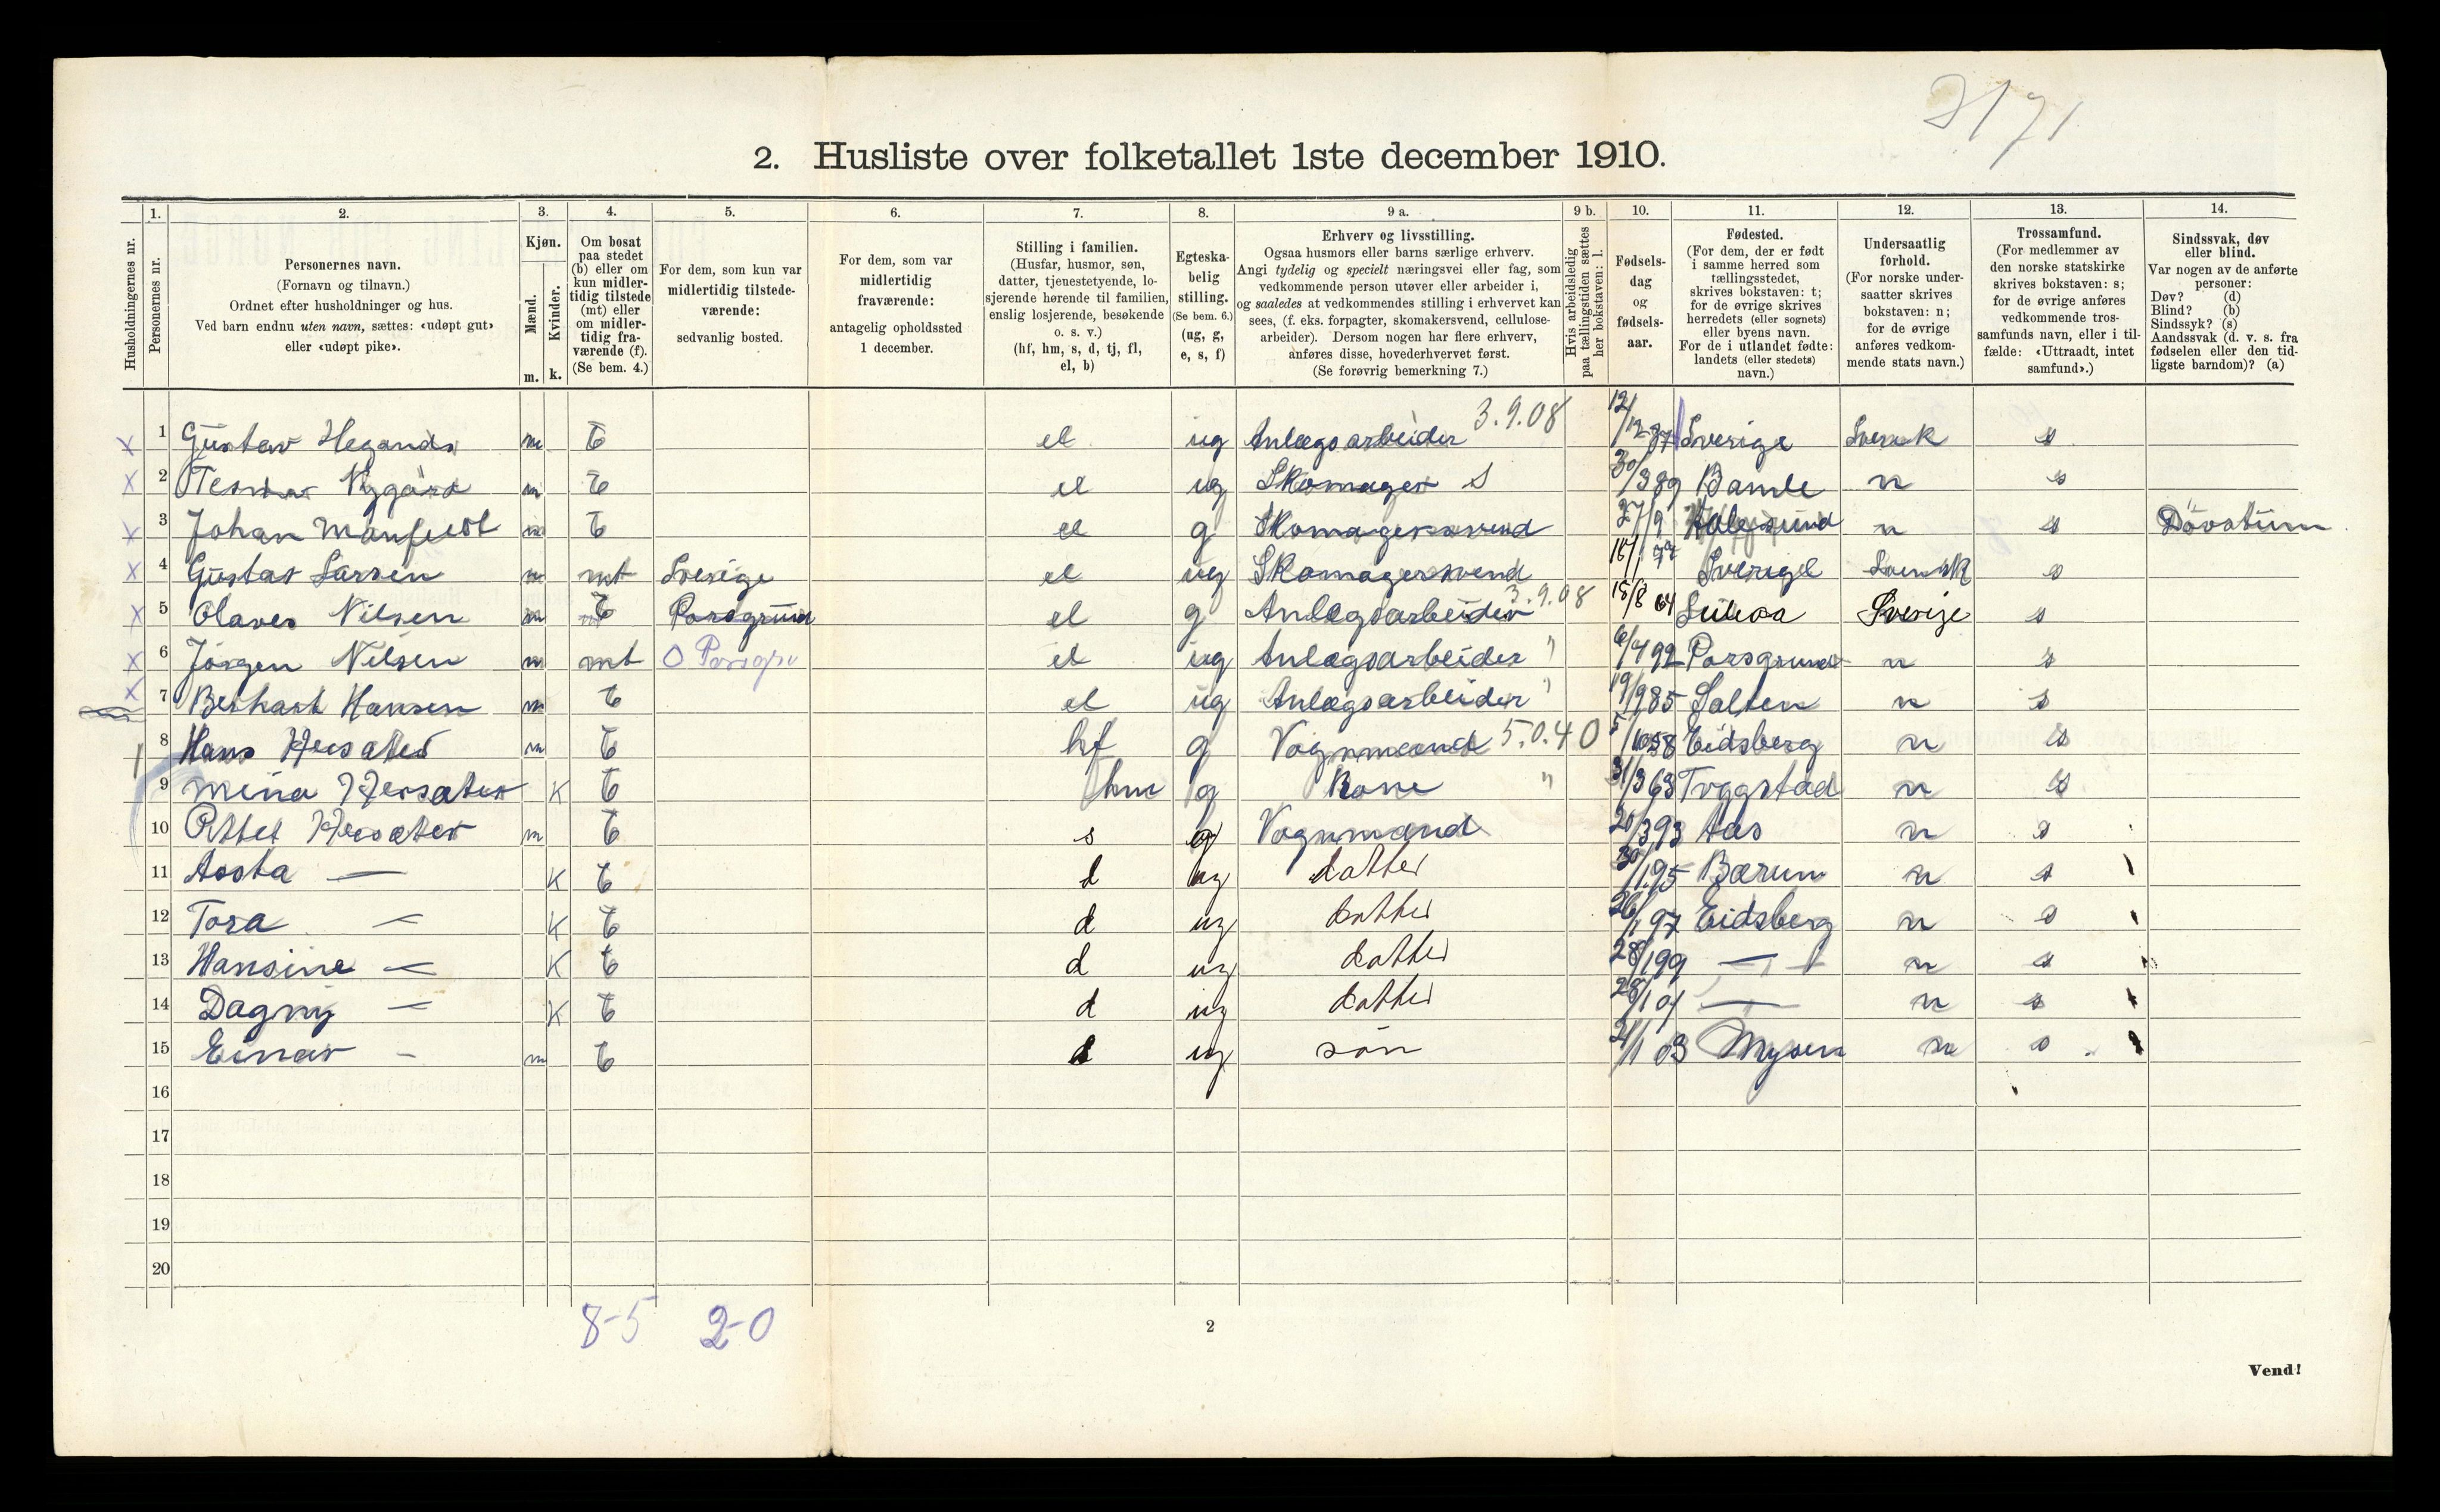 2171
2. Husliste over folketallet 1ste december 1910.
Husholdningernes nr.
1. Personernes nr.
2. Personernes navn. (Fornavn og tilnavn.) Ordnet efter husholdninger og hus. Ved barn endnu uten navn, sættes: «udøpt gut» eller «udøpt pike».
3. Kjøn. Mænd. m. Kvinder. k.
4. Om bosat paa stedet (b) eller om kun midler-tidig tilstede (mt) eller om midler-tidig fra-værende (f). (Se bem. 4.)
5. For dem, som kun var midlertidig tilstede-værende: sedvanlig bosted.
6. For dem, som var midlertidig fraværende: antagelig opholdssted 1 december.
7. Stilling i familien. (Husfar, husmor, søn, datter, tjenestetyende, lo-sjerende hørende til familien, enslig losjerende, besøkende o. s. v.) (hf, hm, s, d, tj, fl, el, b)
8. Egteska-belig stilling. (Se bem. 6.) (ug, g, e, s, f)
9 a. Erhverv og livsstilling. Ogsaa husmors eller barns særlige erhverv. Angi tydelig og specielt næringsvei eller fag, som vedkommende person utøver eller arbeider i, og saaledes at vedkommendes stilling i erhvervet kan sees, (f. eks. forpagter, skomakersvend, cellulose-arbeider). Dersom nogen har flere erhverv, anføres disse, hovederhvervet først. (Se forøvrig bemerkning 7.)
9 b. Hvis arbeidsledig paa tællingstiden sættes her bokstaven: l.
10. Fødsels-dag og fødsels-aar.
11. Fødested. (For dem, der er født i samme herred som tællingsstedet, skrives bokstaven: t; for de øvrige skrives herredets (eller sognets) eller byens navn. For de i utlandet fødte: landets (eller stedets) navn.)
12. Undersaatlig forhold. (For norske under-saatter skrives bokstaven: n; for de øvrige anføres vedkom-mende stats navn.)
13. Trossamfund. (For medlemmer av den norske statskirke skrives bokstaven: s; for de øvrige anføres vedkommende tros-samfunds navn, eller i til-fælde: «Uttraadt, intet samfund».)
14. Sindssvak, døv eller blind. Var nogen av de anførte personer: Døv? (d) Blind? (b) Sindssyk? (s) Aandssvak (d. v. s. fra fødselen eller den tid-ligste barndom)? (a)
x 1 Gustav m b el ug Anlægsarbeider 3.9.08 12/12 87 Sverige Svensk s
x 2 Nygård m b el ug Skomager S 30/3 89 Bamle n s
x 3 Johan m b el g Skomagersvend 27/9 n s Døvstum
x 4 Gustav Larsen m mt Sverige el ug Skomagersvend Sverige Svensk s
x 5 Olaves Nilsen m b Porsgrund el g Anlægsarbeider 3.9.08 15/8 64 Sverige s
x 6 Jörgen Nilsen m mt el ug Anlægsarbeider " 6/4 92 Porsgrund n s
x 7 Berhart Hansen m b el ug Anlægsarbeider " 19/9 85 Salten n s
8 Hans Hersæter m b hf g Vognmand 5.0.40 5/10 58 Eidsberg n s
9 Mina Hersæter K b hm g Kone " 31/3 63 Trygstad n s
10 Hersæter m b s g Vognmand 20/3 93 Aas n s
11 Aosta — K b d ug datter 30/1 95 Bærum n s
12 Tora — K b d ug datter 26/1 97 Eidsberg n s
13 Hansine — K b d ug datter 28/1 99 — n s
14 Dagny — K b d ug datter 28/1 01 — n s
15 Einar - m b ug sön 21/1 03 Mysen n s
16
17
18
19
20
8-5 2-0
2
Vend!